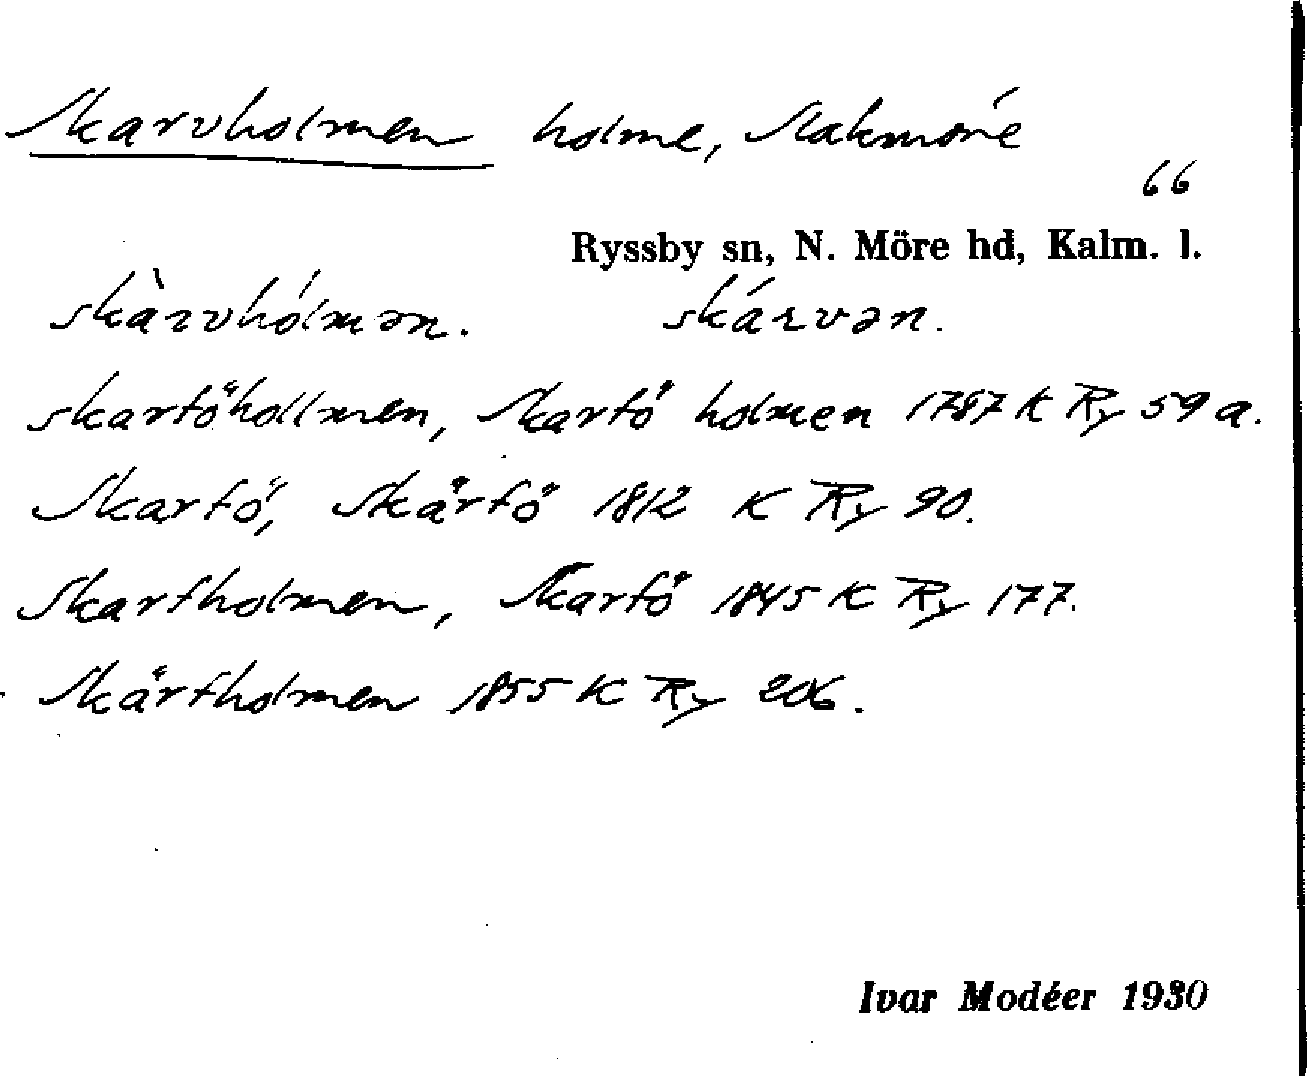 Skarvholmen holme, Stakmöre
66
Ryssby sn, N. Möre hd, Kalm. l.
skàrvhólmən. skárvən.
skarföhollmen, Skarfö holmen 1787 K Ry 59 a.
Skarfö, Skärfö 1812 K Ry 90.
Skarfholmen, Skarfö 1845 K Ry 177.
Skärfholmen 1855 K Ry 206.
Ivar Modéer 1930